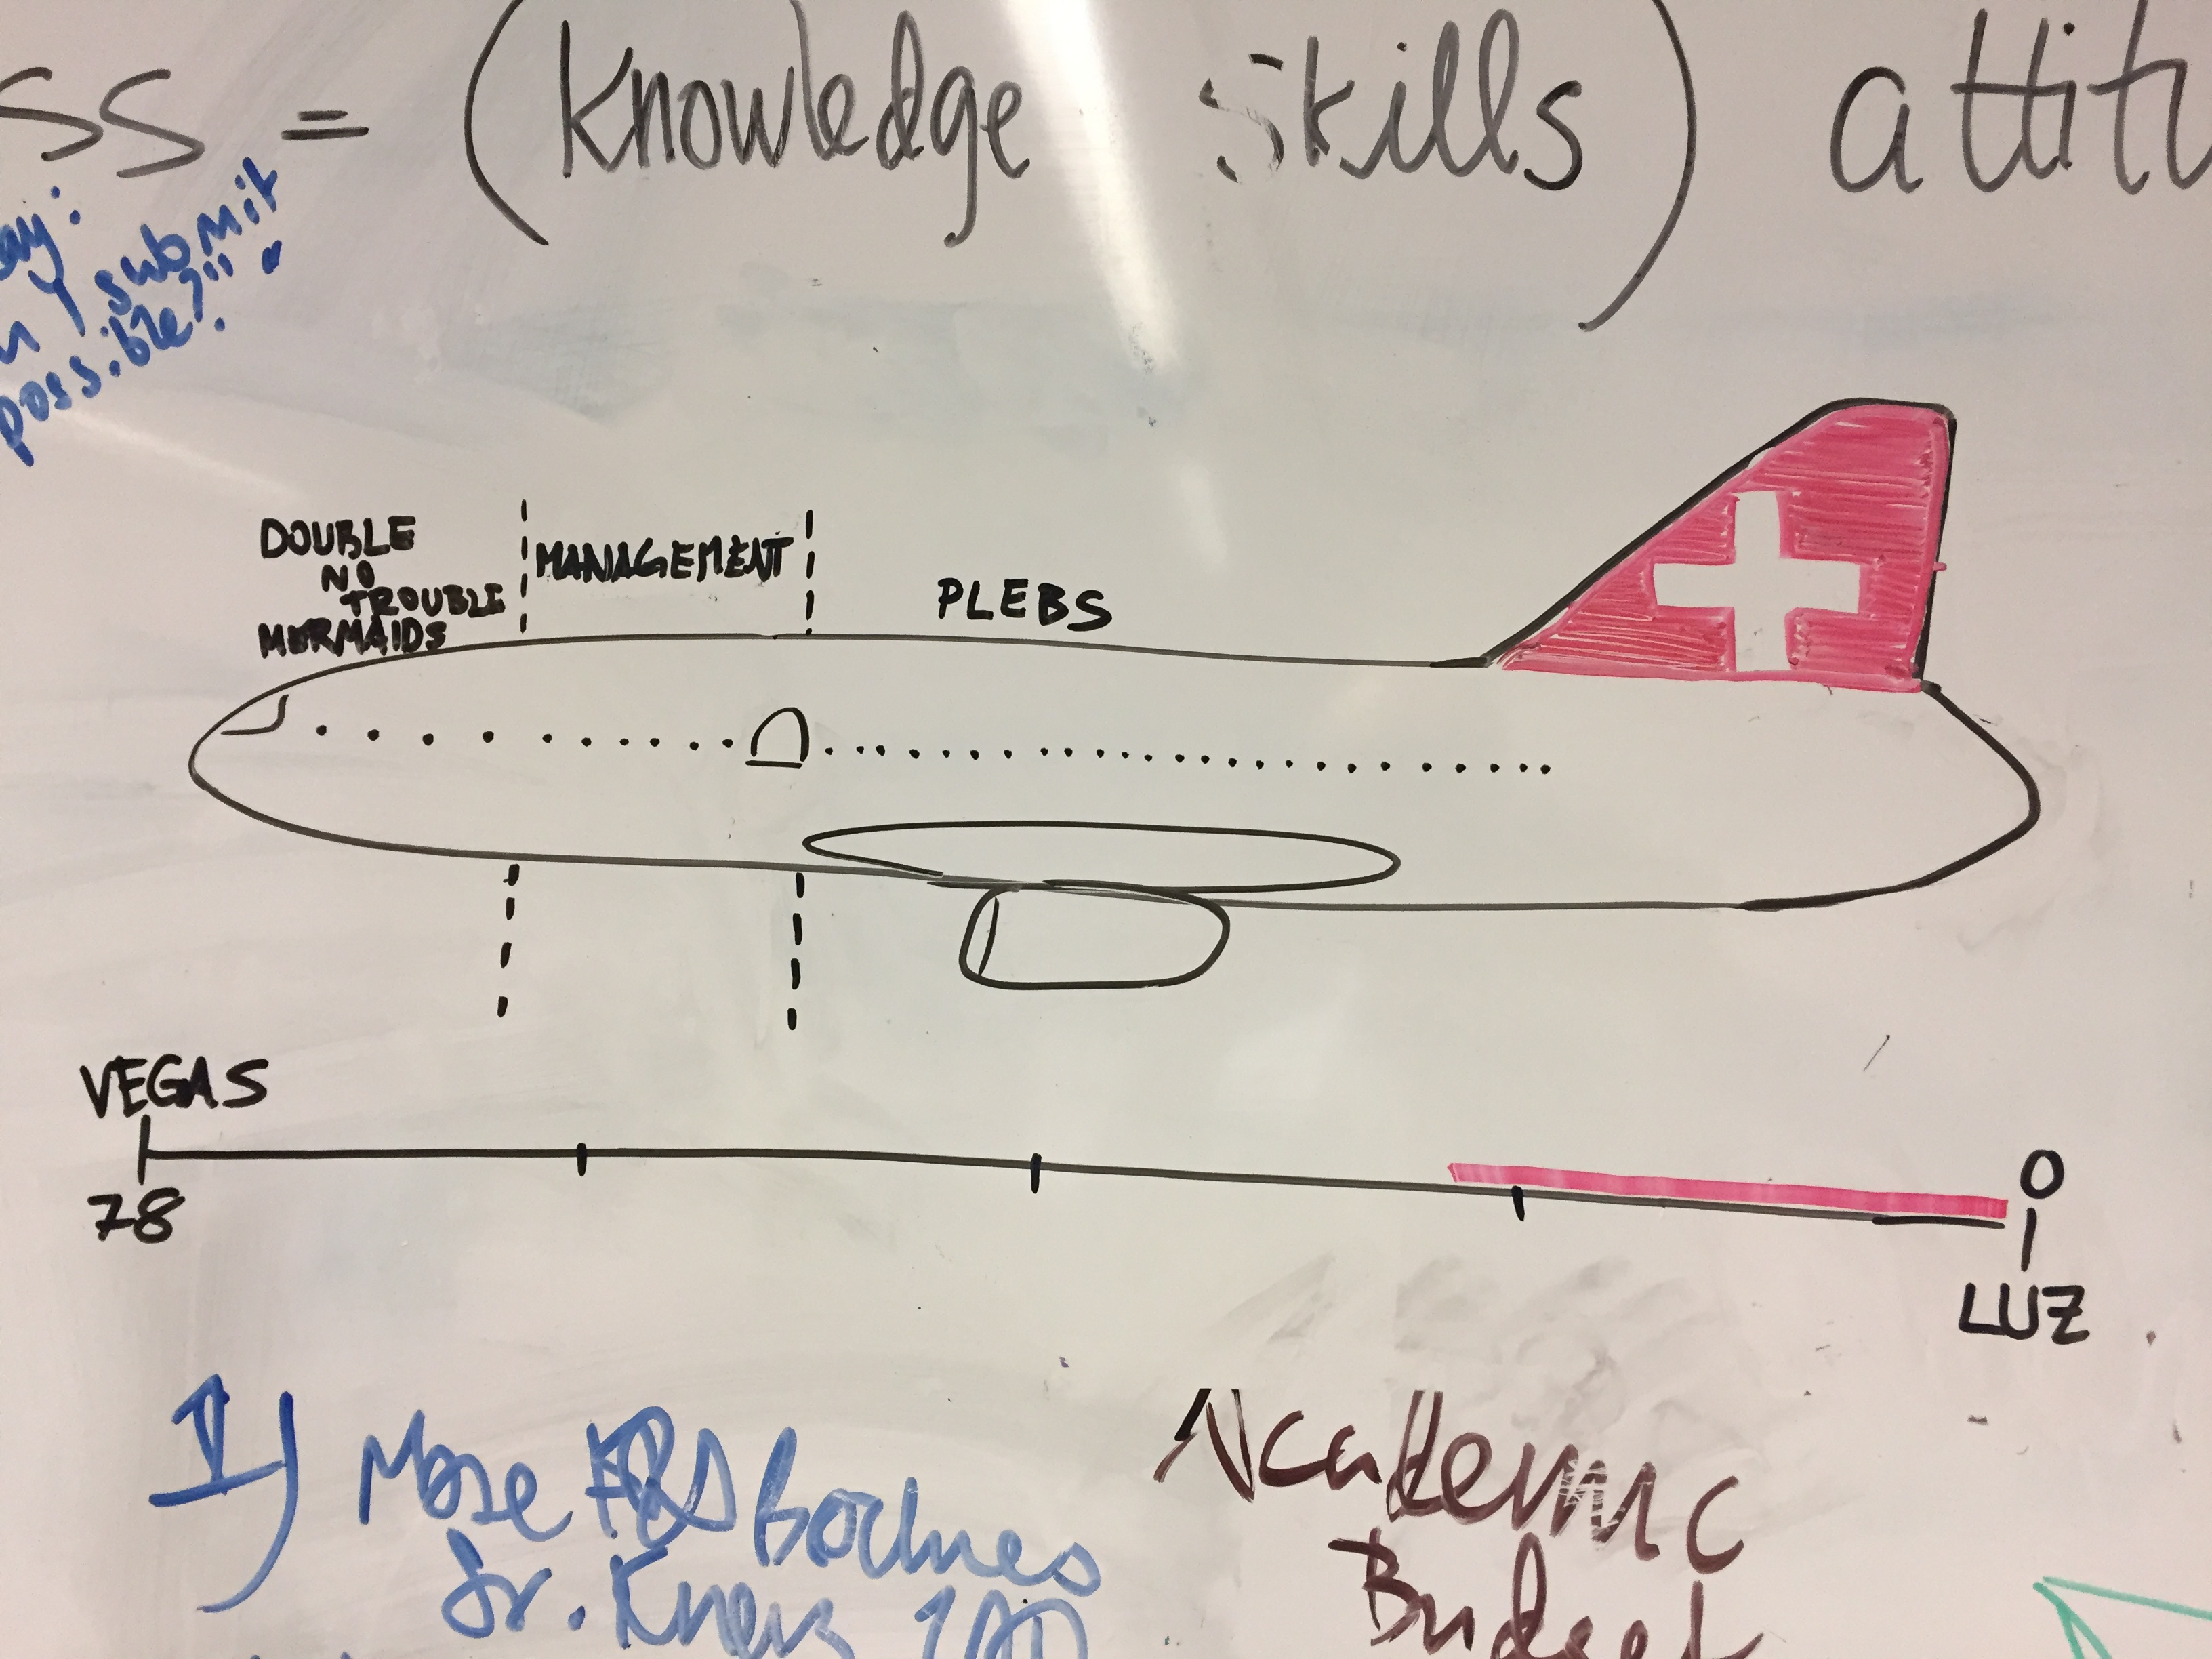 SS = (Knowledge Skills) attit
ay:
submit
possible?!!
DOUBLE
NO
TROUBLE
MERMAIDS
MANAGEMENT
PLEBS
VEGAS
78
0
LUZ
II) More
Academic
Budget